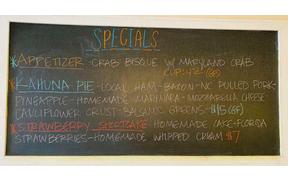 SPECIALS
*APPETIZER - CRAB BISQUE W/ MARYLAND CRAB
CUP: 4.2 (GF)
*KAHUNA PIE - LOCAL HAM - BACON - NC PULLED PORK -
PINEAPPLE - HOMEMADE MARINARA - MOZZARELLA CHEESE
CAULIFLOWER CRUST - BALSAMIC GREENS - $15 (GF)
*STRAWBERRY SHORTCAKE HOMEMADE CAKE - FLORIDA
STRAWBERRIES - HOMEMADE WHIPPED CREAM $7